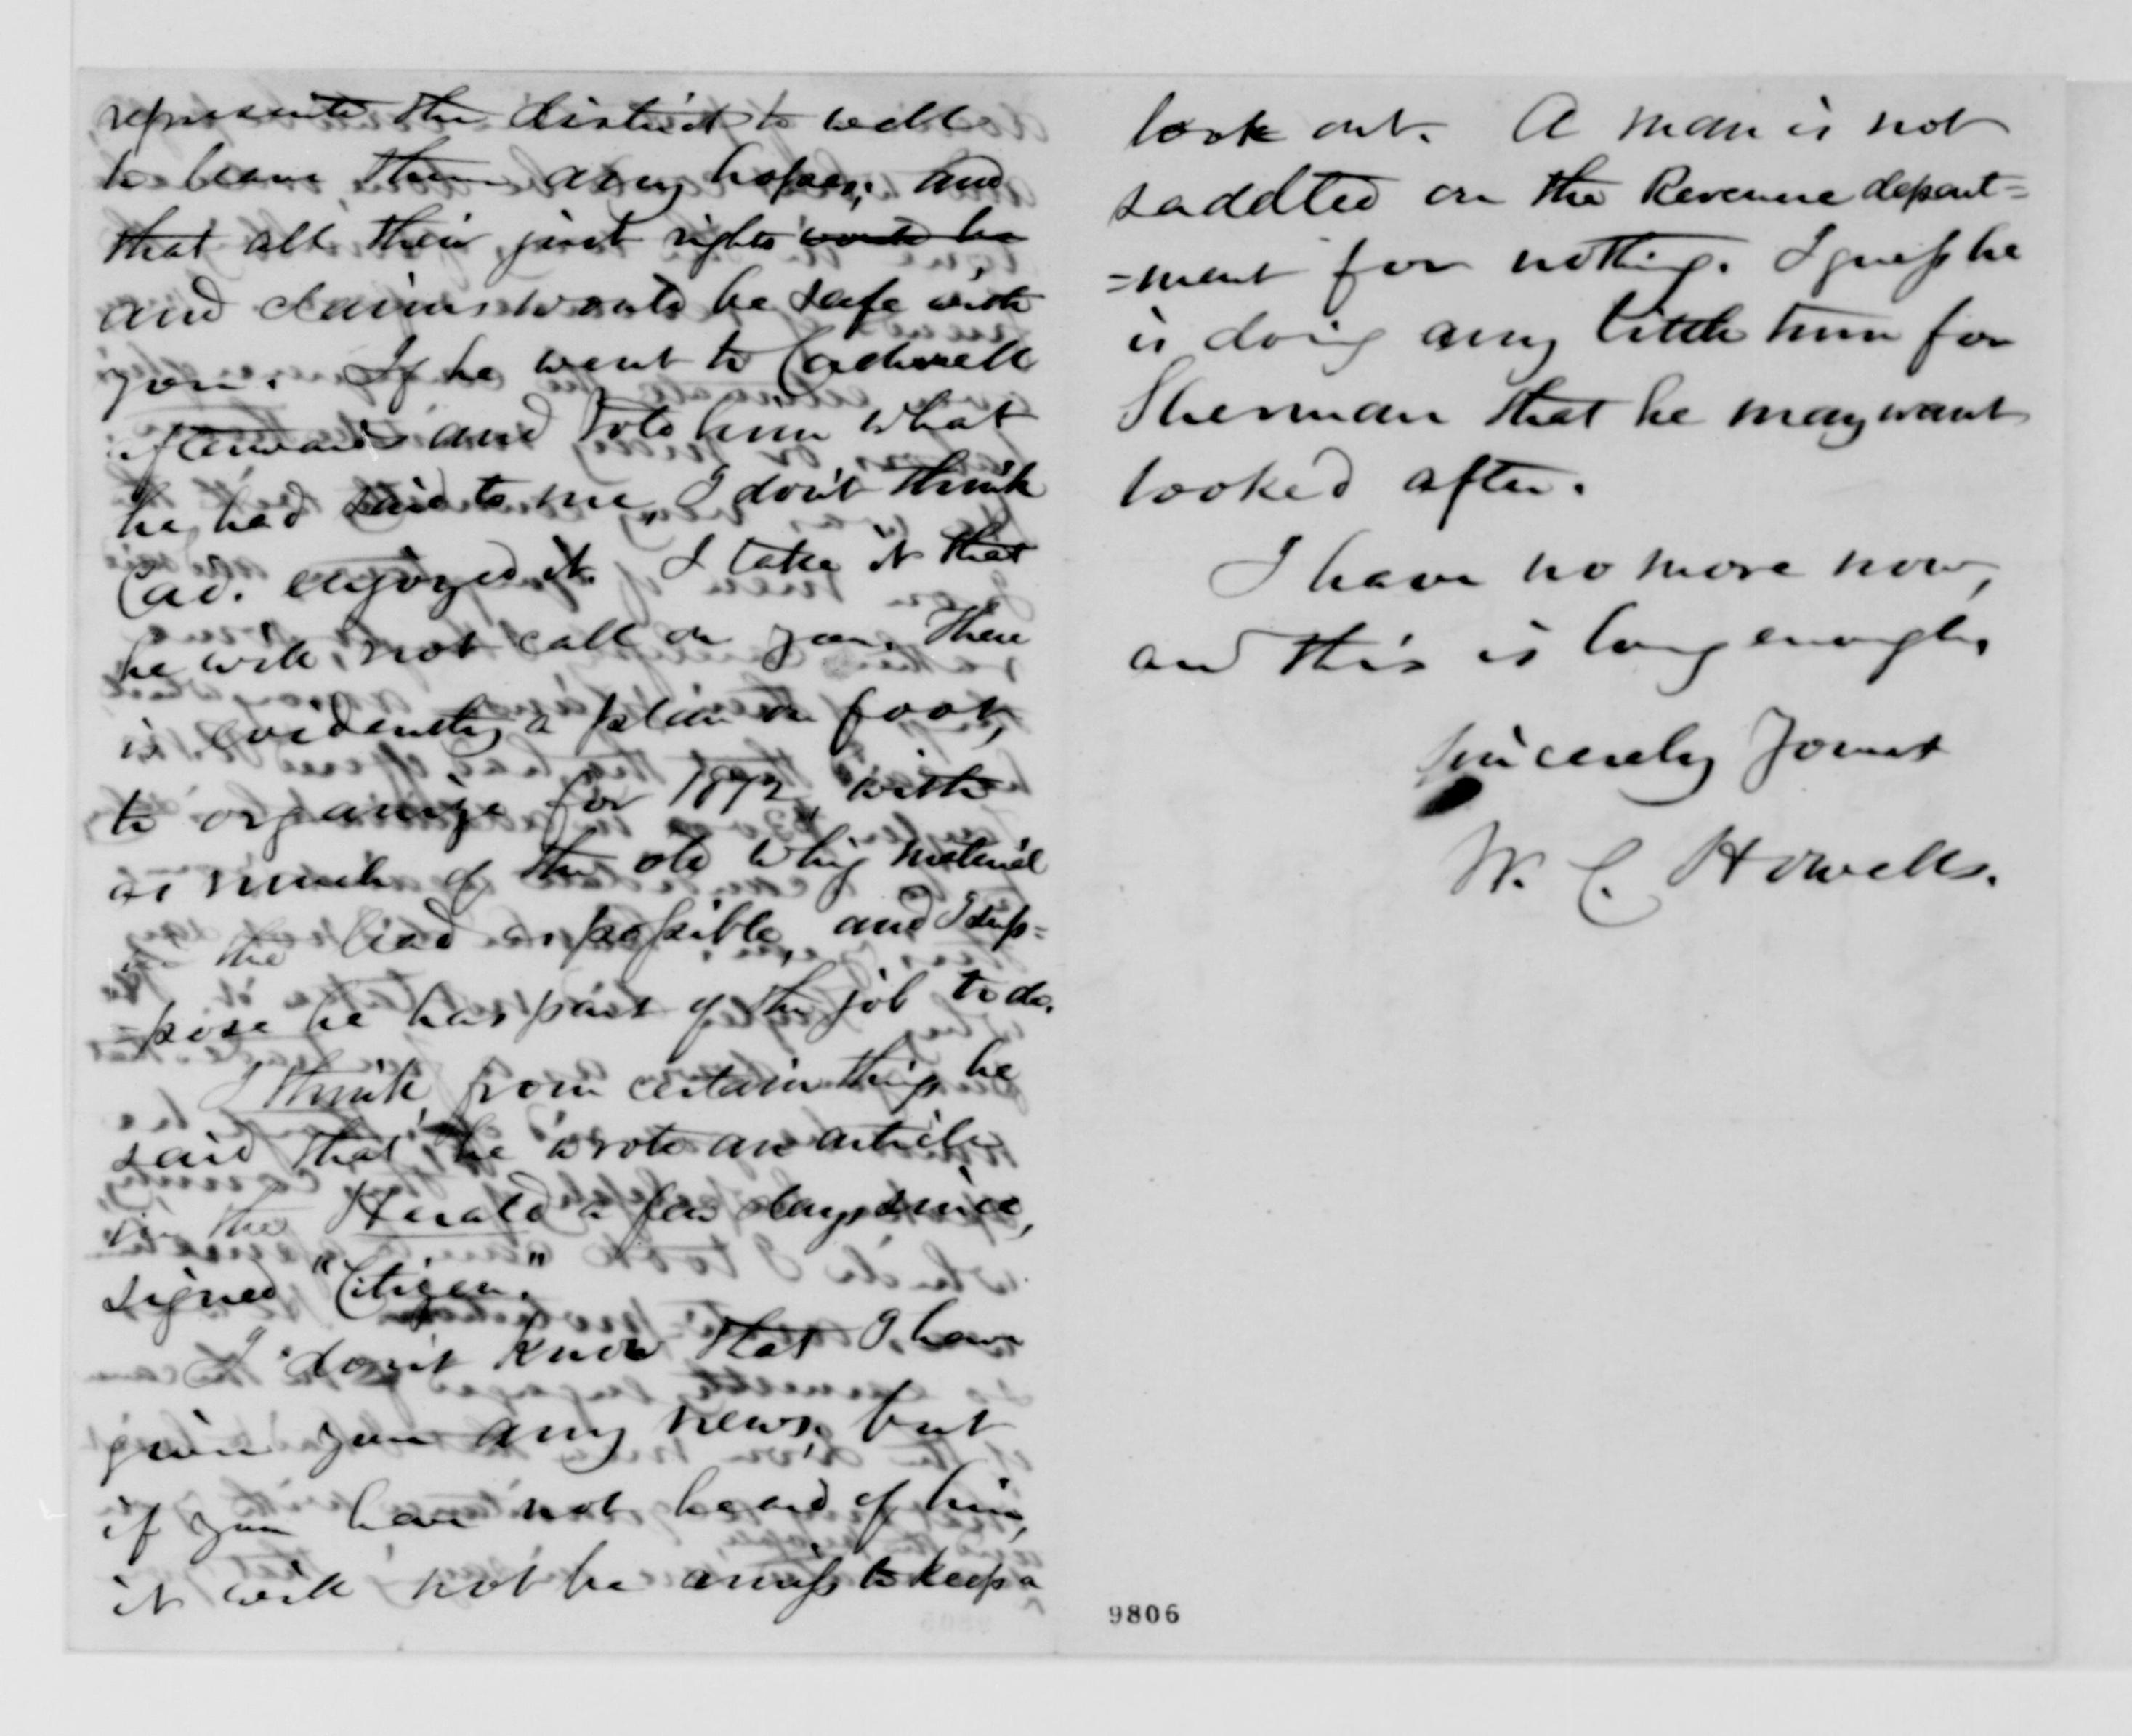 represents the district to well
to leave them any hopes; and
that all their just rights would be
and claims would be safe with
you. If he went to Cadwell
afterwards and told him what
he had said to me, I don't think
Cad. enjoyed it. I take it that
he will not call on you. There
is evidently a plan on foot,
to organize for 1872, with
as much of the old Whig material
in the lead as possible, and I sup=
=pose he has part of the job to do.
I think from certain things he
said that he wrote an article
in the Herald a few days since,
signed "Citizen."
I don't know that I have
given you any news, but
if you have not heard of him,
it will not be amiss to keep a
look out. A man is not
saddled on the Revenue depart=
=ment for nothing. I guess he
is doing any little turn for
Sherman that he may want
looked after.
I have no more now,
and this is long enough.
Sincerely Yours
W. C. Howells.
9806